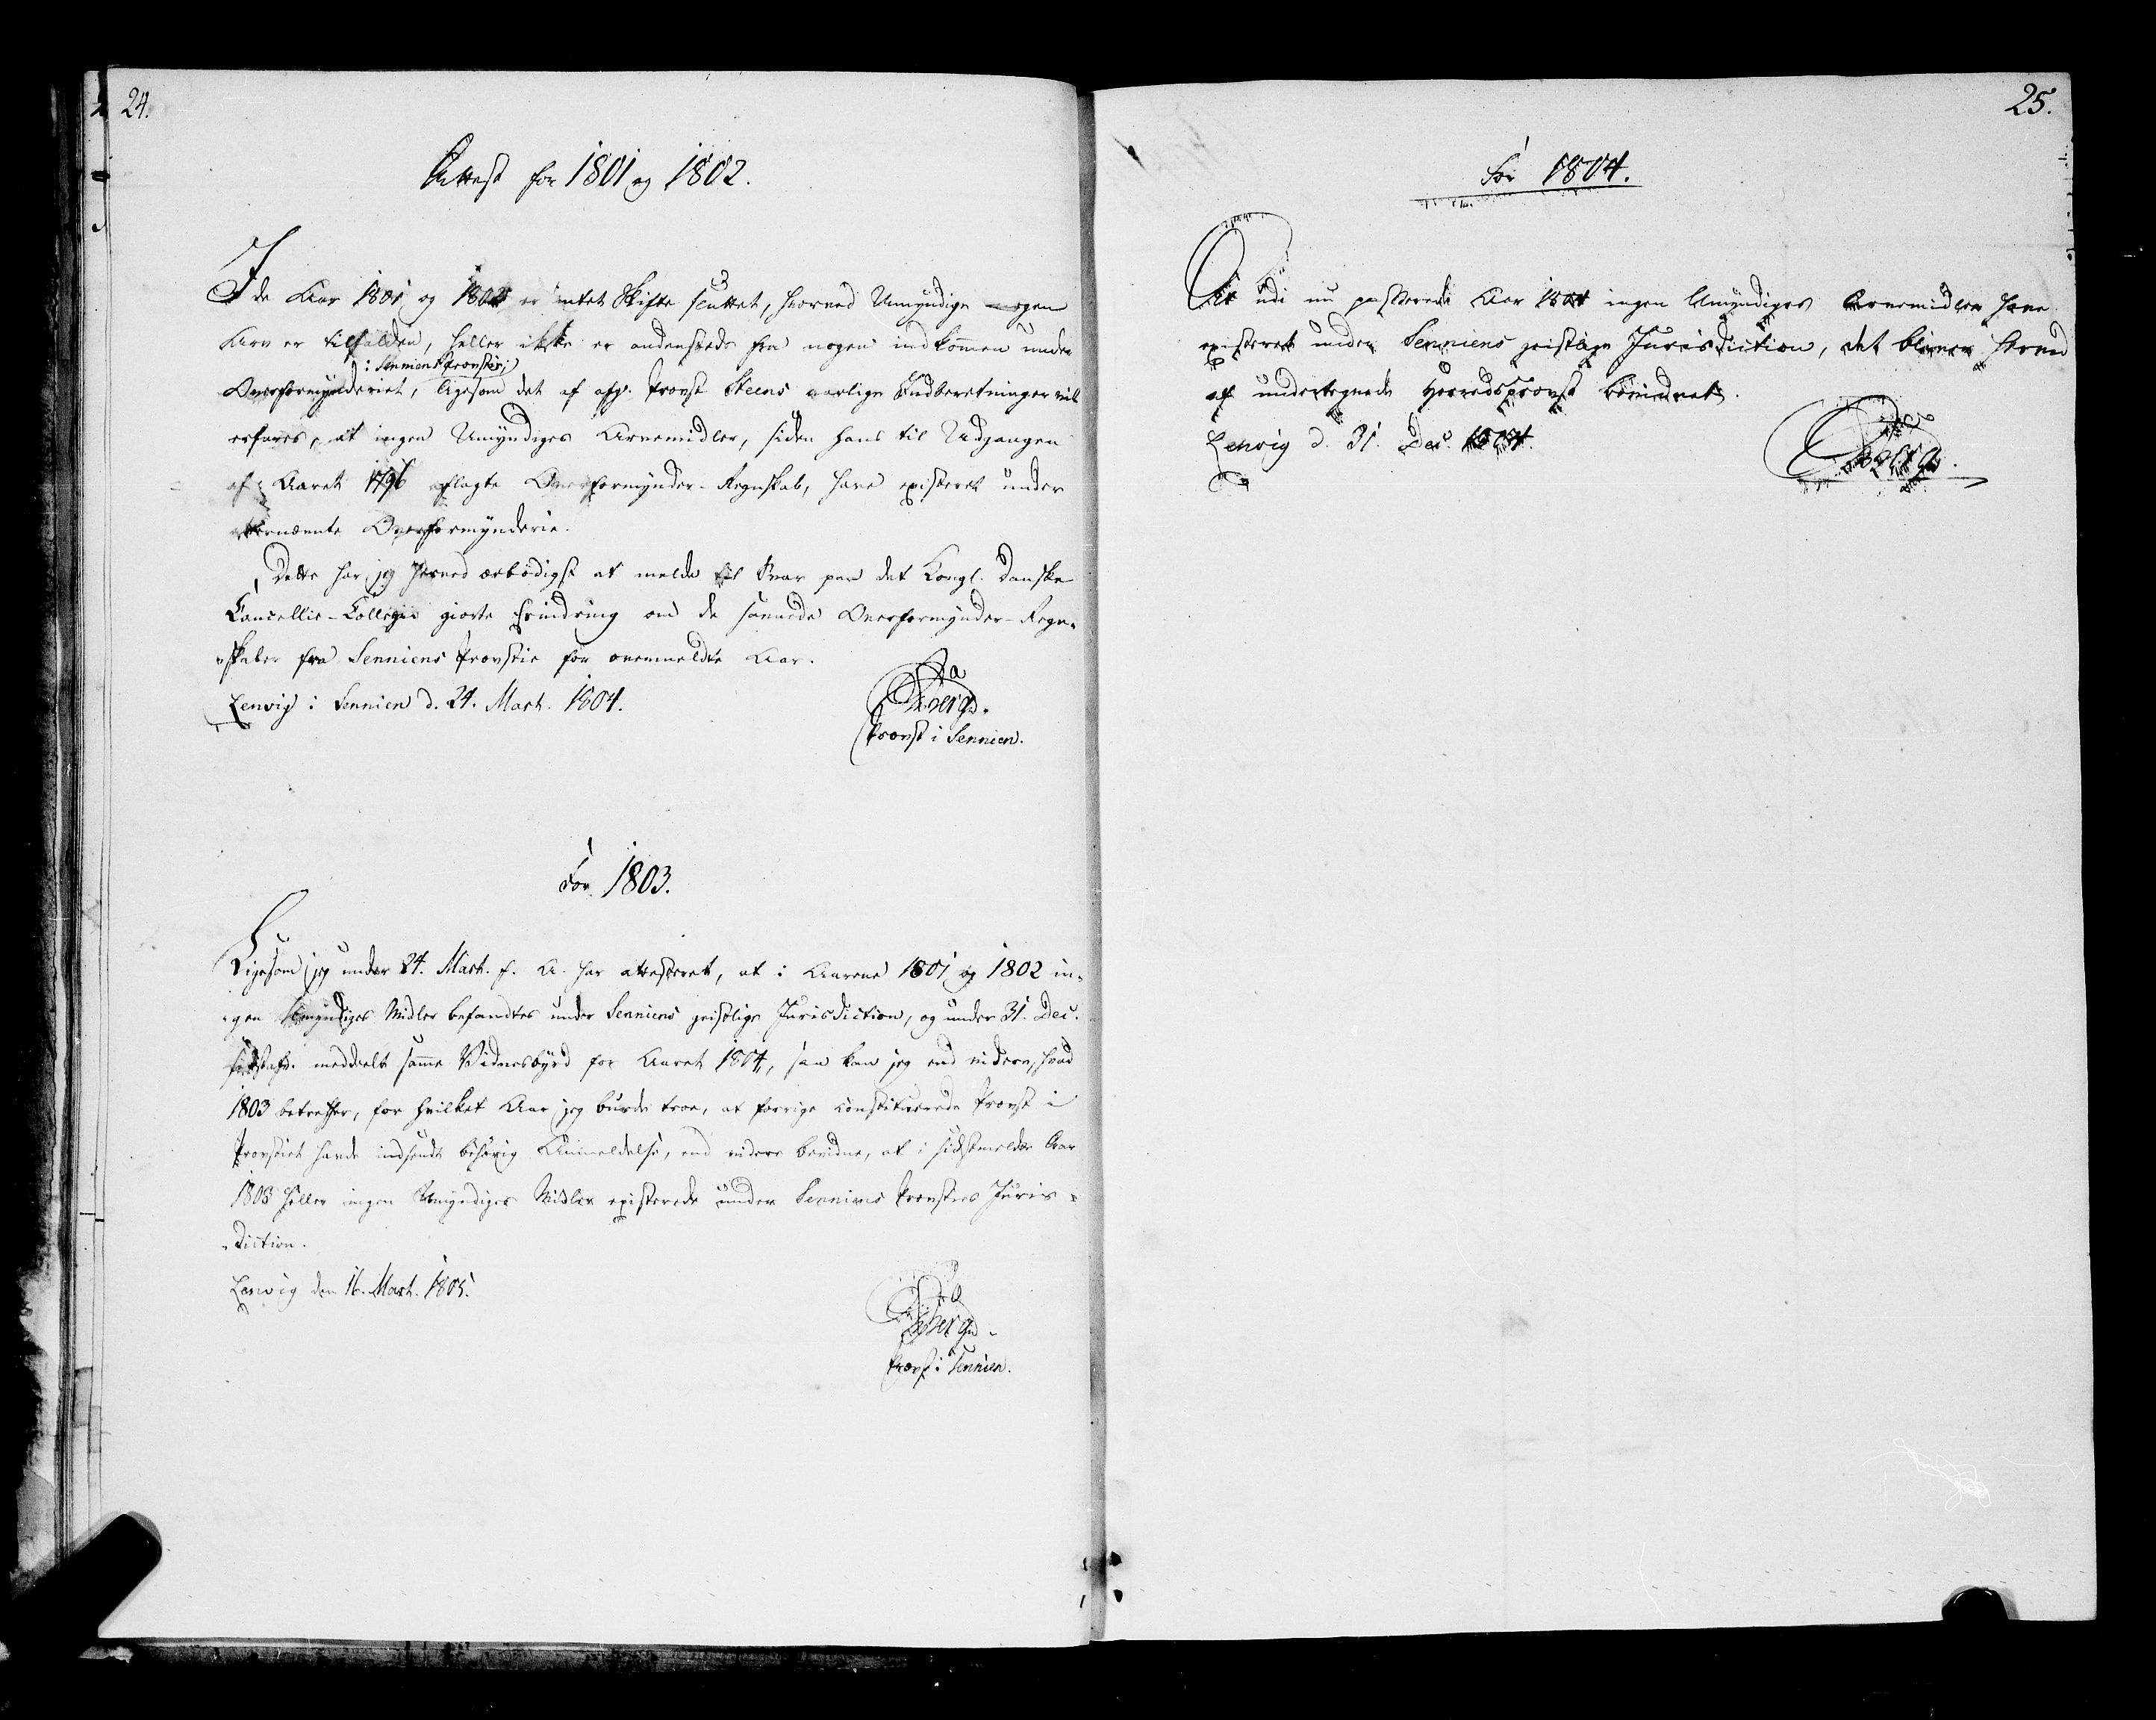 24.
Attest for 1801 og 1802.
I de Aar 1801 og 1802 er intet Skifte sluttet, hvorved Umyndige nogen
Arv er tilfalden, heller ikke er andensteds fra nogen indkommen under
/: Senniens Provstie :/
Overformynderiet, ligesom det af afg. Provst Steens aarlige Indberetninger vil
erfares, at ingen Umyndiges Arvemidler, siden hans til Udgangen
af Aaret 1796 aflagte Overformynder-Regnskab, have existeret under
bemeldte Overformynderie.
Dette har jeg herved ærbødigst at melde til Svar paa det Kongl. Danske
Cancellie-Collegii giorte Erindring om de savnede Overformynder-Regn-
-skaber fra Senniens Provstie for ovenmeldte Aar.
Lenvig i Sennien d. 24. Mart. 1804.
Aaberg.
Provst i Sennien.
For 1803.
Ligesom jeg under 24. Mart. f. A. har attesteret, at i Aarene 1801 og 1802 in-
-gen Umyndiges Midler befandtes under Senniens geistlige Jurisdiction, og under 31. Dec.
sidstafv. meddeelt samme Vidnesbyrd for Aaret 1804, saa kan jeg end videre, hvad
1803 betreffer, for hvilket Aar jeg burde troe, at forrige constituerede Provst i
Provstiet havde indsendt behørig Anmeldelse, end videre bevidne, at i sidstmeldte Aar
1803 heller ingen Umyndiges Midler existerede under Senniens Provsties Juris-
-diction.
Lenvig den 16. Mart. 1805.
Aaberg.
Provst i Sennien.
25.
For 1804.
At udi nu passerede Aar 1804 ingen Umyndiges Arvemidler have
existeret under Senniens geistlige Jurisdiction, det bliver herved
af undertegnede Herredsprovst bevidnet.
Lenvig d. 31. Dec. 1804.
Aaberg.